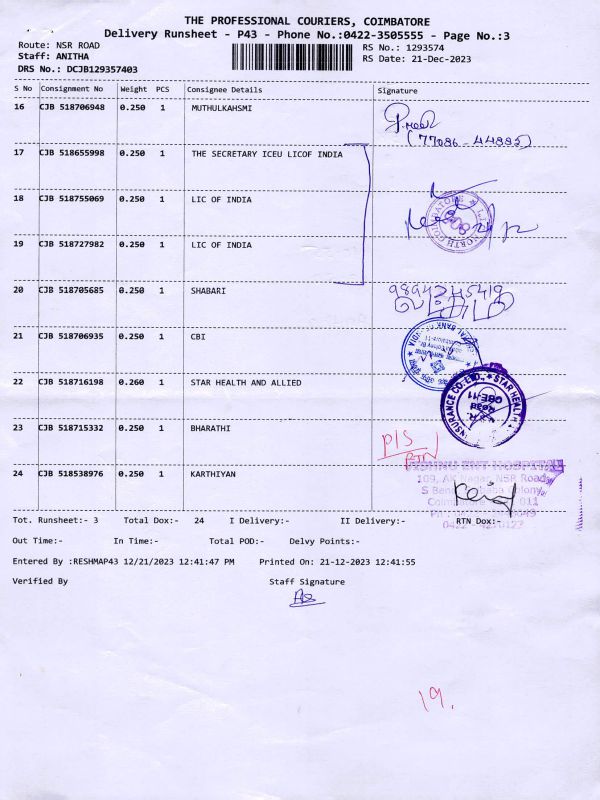 THE PROFESSIONAL COURIERS, COIMBATORE
Delivery Runsheet - P43 - Phone No.:0422-3505555 - Page No.:3
Route: NSR ROAD
RS No.: 1293574
Staff: ANITHA
RS Date: 21-Dec-2023
DRS No.: DCJB129357403
S No Consignment No Weight PCS Consignee Details Signature
16 CJB 518706948 0.250 1 MUTHULKAHSMI
(77086-44885)
17 CJB 518655998 0.250 1 THE SECRETARY ICEU LICOF INDIA
18 CJB 518755069 0.250 1 LIC OF INDIA
19 CJB 518727982 0.250 1 LIC OF INDIA
20 CJB 518705685 0.250 1 SHABARI
9894245419
21 CJB 518706935 0.250 1 CBI
22 CJB 518716198 0.260 1 STAR HEALTH AND ALLIED
INSURANCE CO. LTD. ★ STAR HEALTH
CBE-11
23 CJB 518715332 0.250 1 BHARATHI
P/S
RTN
24 CJB 538538976 0.250 1 KARTHIYAN
VISHNU ENT HOSPITAL
NSR Road
Colony
Tot. Runsheet:- 3 Total Dox:- 24 I Delivery:- II Delivery:- RTN Dox:-
Out Time:- In Time:- Total POD:- Delvy Points:-
Entered By :RESHMAP43 12/21/2023 12:41:47 PM Printed On: 21-12-2023 12:41:55
Verified By Staff Signature
19.